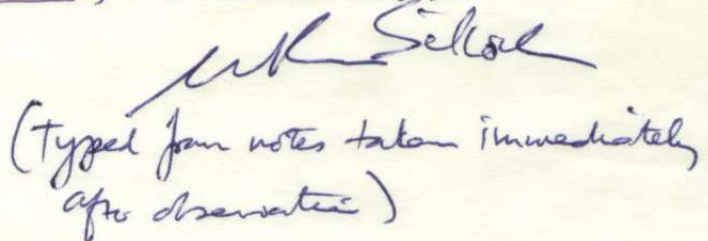 (Typed from notes taken immediately
after observation)